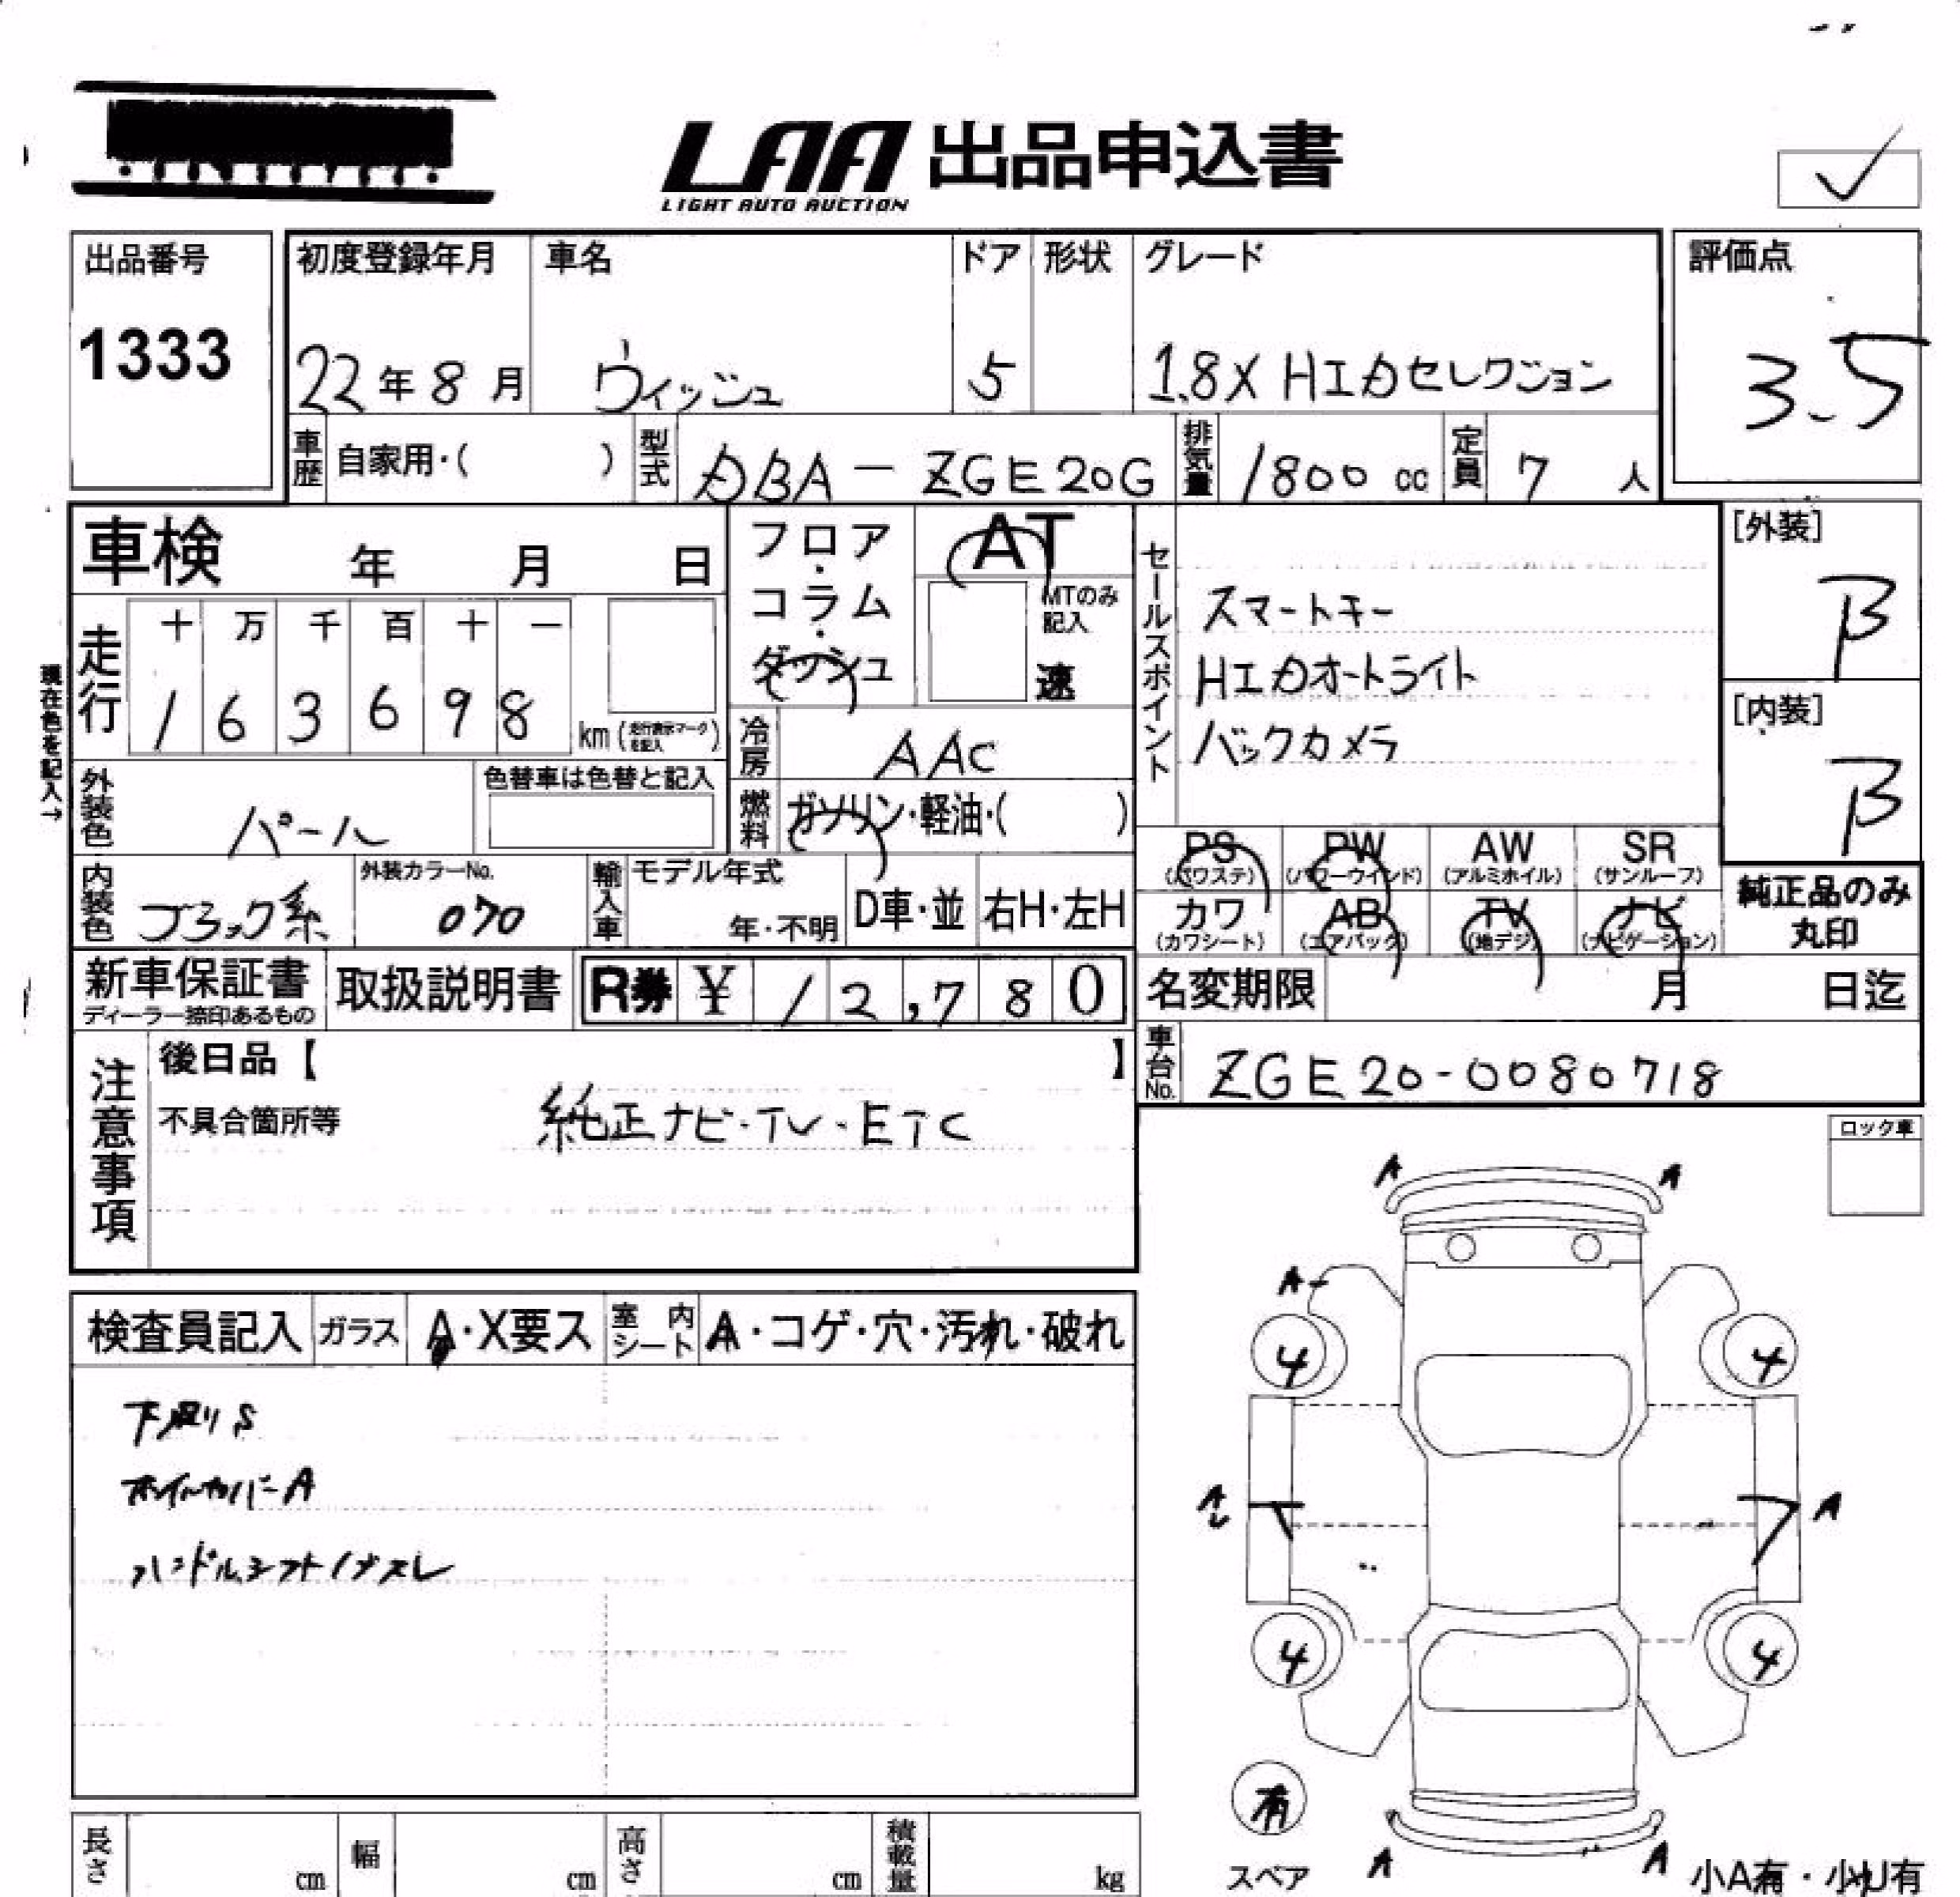 LAA 出品申込書
LIGHT AUTO AUCTION
出品番号
1333
初度登録年月 車名 ドア 形状 グレード
22年8月 ウィッシュ 5 1.8X HIDセレクション
評価点
3.5
車歴 自家用・( ) 型式 DBA-ZGE20G 排気量 1800cc 定員 7人
車検 年 月 日
フロア・コラム・ダッシュ
AT
MTのみ記入
速
走行 十 万 千 百 十 一
1 6 3 6 9 8 km (走行表示マークを記入)
現在色を記入→
冷房 AAC
燃料 ガソリン・軽油・( )
外装色 パール
色替車は色替と記入
内装色 ブラック系
外装カラーNo.
070
輸入車 モデル年式
年・不明 D車・並 右H・左H
セールスポイント
スマートキー
HIDオートライト
バックカメラ
[外装]
B
[内装]
B
PS PW AW SR
(パワステ) (パワーウインド) (アルミホイル) (サンルーフ)
カワ AB TV ナビ
(カワシート) (エアバック) (地デジ) (ナビゲーション)
純正品のみ
丸印
新車保証書
ディーラー捺印あるもの
取扱説明書
R券 ¥ 12,780
名変期限 月 日迄
車台No. ZGE20-0080718
注意事項
後日品【 】
不具合箇所等
純正ナビ・TV・ETC
ロック車
検査員記入 ガラス A・X要ス 室内シート A・コゲ・穴・汚れ・破れ
下廻りS
ホイルカバーA
ハンドルシフトノブスレ
A A
A
4 4
A A
4 4
有
スペア
A A
小A有・小U有
長さ cm 幅 cm 高さ cm 積載量 kg